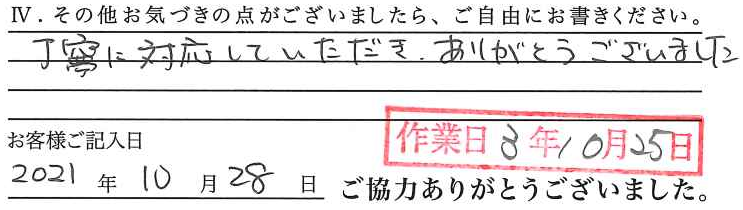 Ⅳ．その他お気づきの点がございましたら、ご自由にお書きください。
丁寧に対応していただき、ありがとうございました
お客様ご記入日
作業日 3年10月25日
2021 年 10 月 28 日 ご協力ありがとうございました。